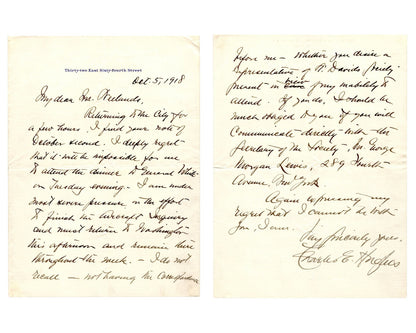 Thirty-two East Sixty-fourth Street
Oct. 5, 1918
My dear Mr.
Returning to the City for
a few hours I find your note of
October second. I deeply regret
that it will be impossible for me
to attend the dinner to General
on Tuesday evening. I am under
most severe pressure in the effort
to finish the Aircraft Inquiry
and must return to Washington
this afternoon and remain there
throughout the week. — I do not
recall — not having the correspondence
before me — whether you desire a
representative of St. Davids Society
present in view of my inability to
attend. If you do, I should be
much obliged if you will
communicate directly with the
Secretary of the Society, Mr. George
Morgan Lewis, 289 Fourth
Avenue, New York.
Again expressing my
regret that I cannot be with
you, I am.
Very sincerely yours,
Charles E. Hughes